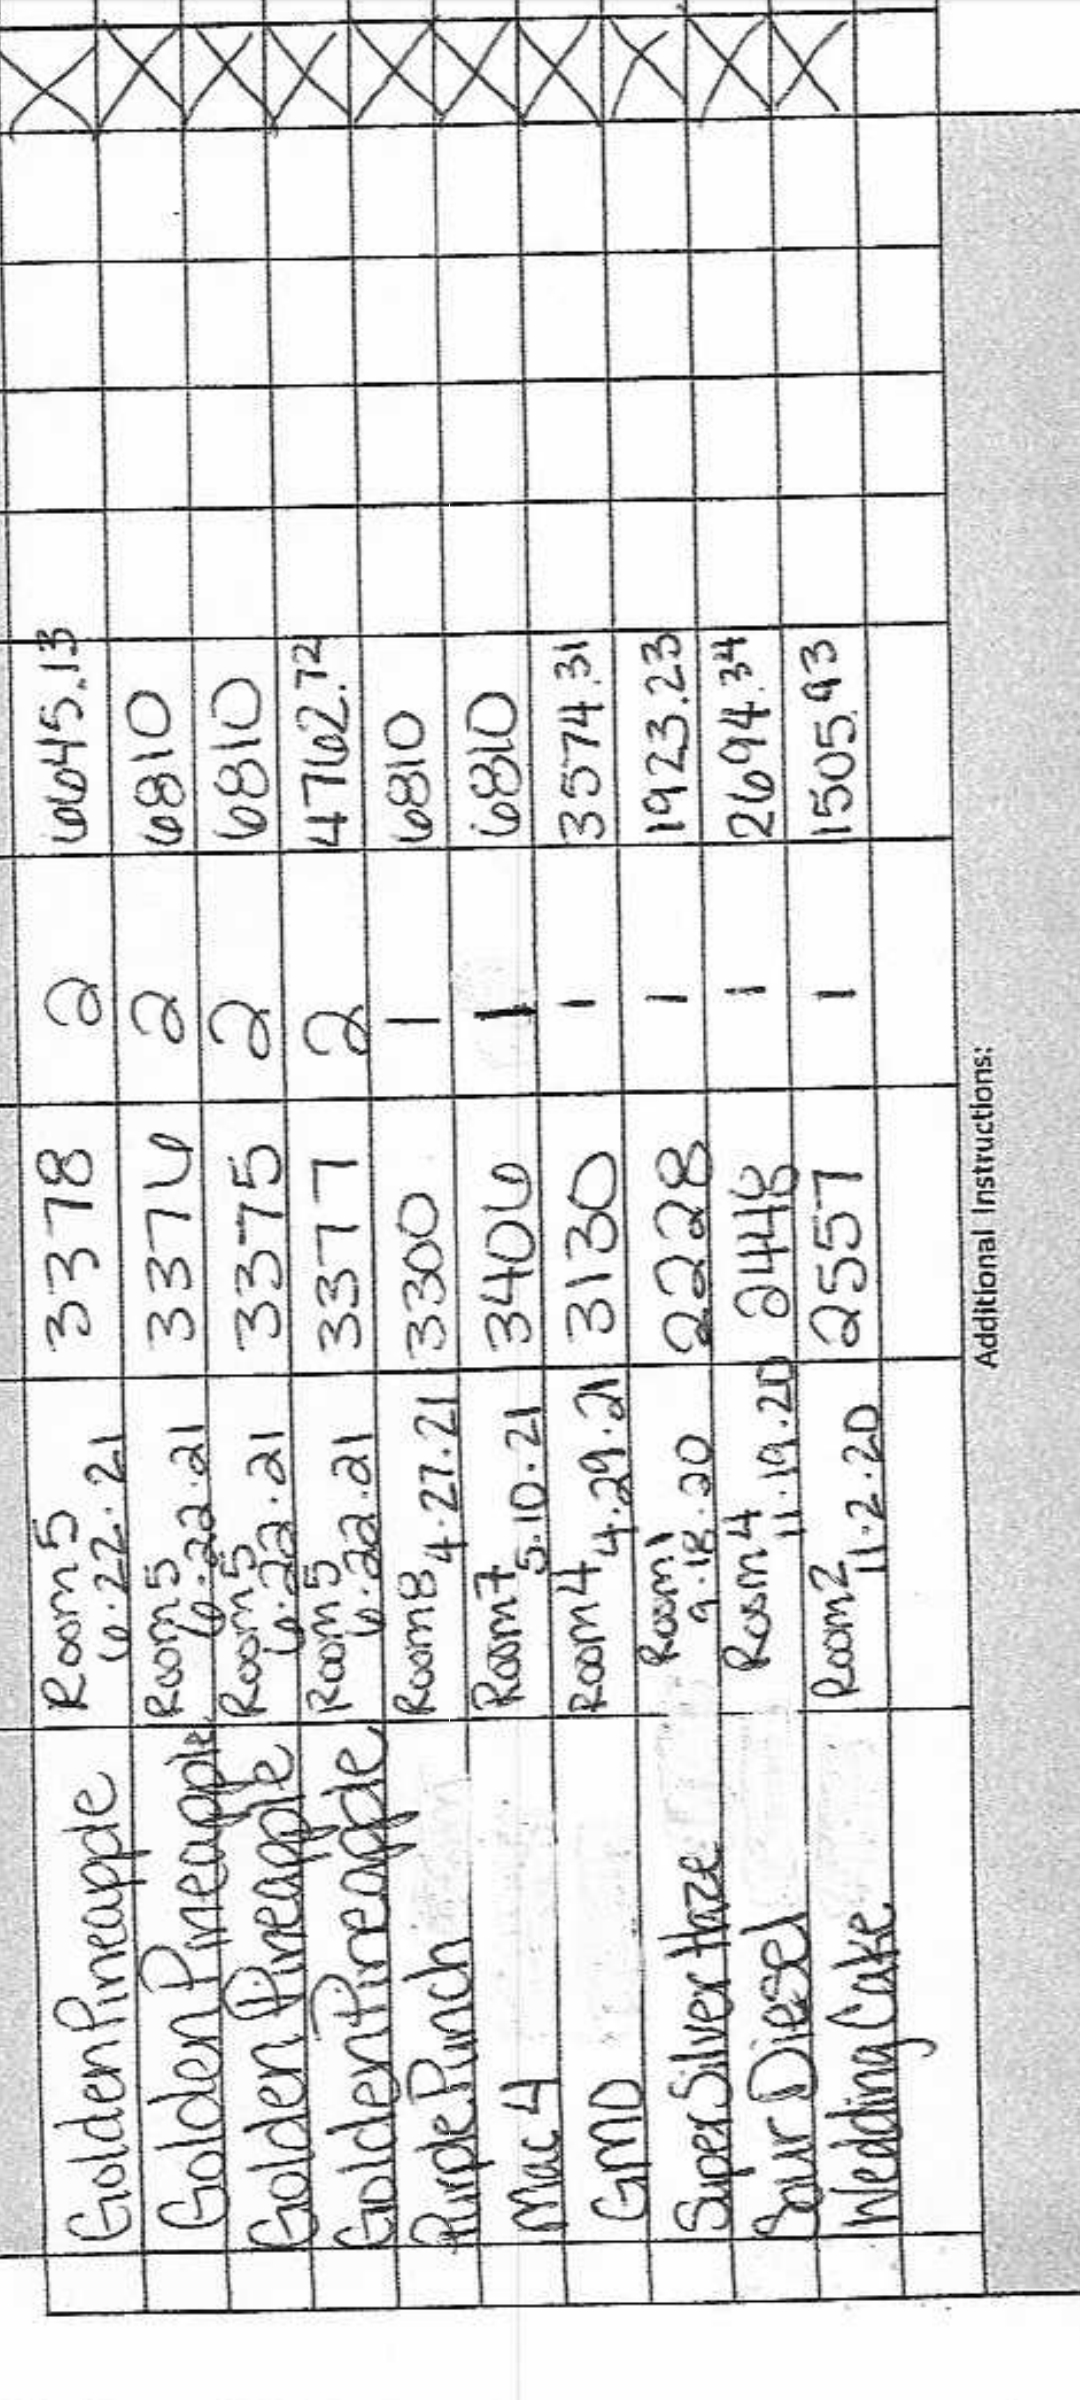 Golden Pineapple Room 5 6.22.21 3378 2 6645.13
Golden Pineapple Room 5 6.22.21 3376 2 6810
Golden Pineapple Room 5 6.22.21 3375 2 6810
Golden Pineapple Room 5 6.22.21 3377 2 4762.72
Purple Punch Room 8 4.27.21 3300 1 6810
Mac 4 Room 7 5.10.21 3406 1 6810
GMO Room 4 4.29.21 3130 1 3574.31
Super Silver Haze Room 1 9.18.20 2228 1 1923.23
Sour Diesel Room 4 11.19.20 2448 1 2694.34
Wedding Cake Room 2 11.2.20 2557 1 1505.93
Additional Instructions: